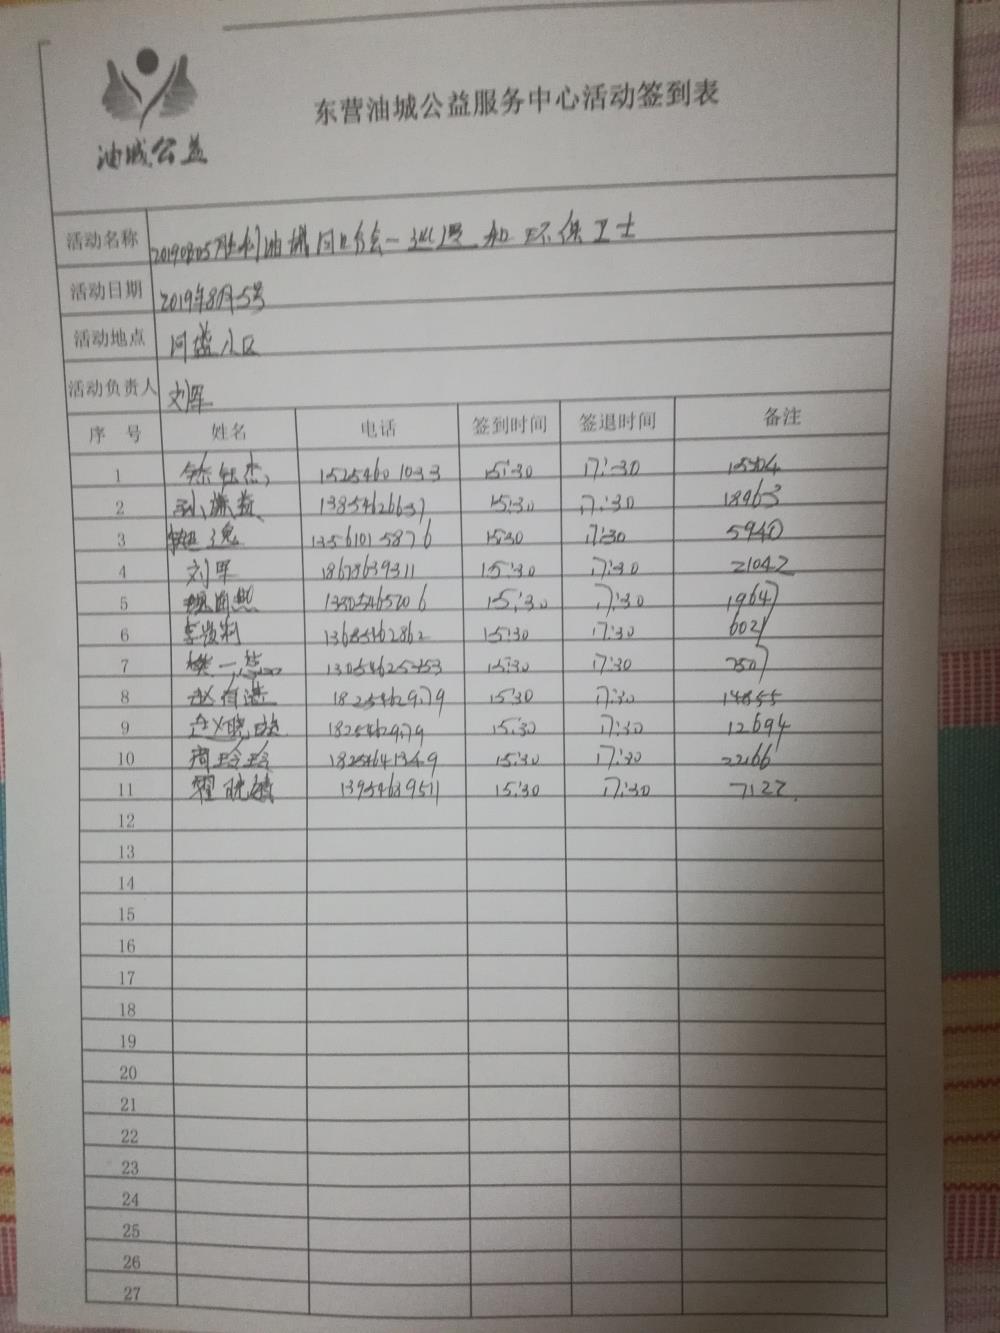 油城公益
东营油城公益服务中心活动签到表
活动名称 20190805胜利油城 环保卫士
活动日期 2019年8月5号
活动地点 小区
活动负责人 刘军
序 号 姓名 电话 签到时间 签退时间 备注
1 15254601033 15:30 17:30 15504
2 13854626637 15:30 17:30 18963
3 13561015876 15:30 17:30 5940
4 刘军 18678639311 15:30 17:30 21042
5 13305465206 15:30 17:30 19647
6 13685462862 15:30 17:30 6021
7 13054625453 15:30 17:30 7507
8 1825462979 15:30 17:30 14855
9 赵晓 1825462979 15:30 17:30 12694
10 尚玲玲 18254641349 15:30 17:30 2266
11 翟晓 13954639511 15:30 17:30 7122
12
13
14
15
16
17
18
19
20
21
22
23
24
25
26
27